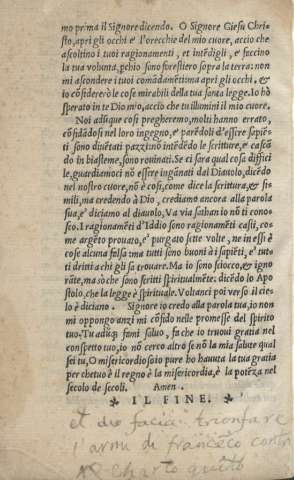 mo prima il Signore dicendo. O Signore Giesu Chri-
sto, apri gli occhi e l'orecchie del mio cuore, accio che
ascoltino i tuoi ragionamenti, et intẽdigli, e faccino
la tua volunta, pchio sono forestiero sopra la terra: non
mi ascondere i tuoi comãdamẽti ma apri gli occhi, &
io cõsidererò le cose mirabili della tua santa legge. Io hò
sperato in te Dio mio, accio che tu illumini il mio cuore.
Noi adũque cosi pregheremo, molti hanno errato,
cõfidãdosi nel loro ingegno, e parẽdoli d'essere sapiẽ
ti sono diuẽtati pazzi, nõ intẽdẽdo le scritture, e cascã
do in biasteme, sono rouinati. Se ci sara qual cosa diffici
le, guardiamoci nõ essere ingãnati dal Diauolo, dicẽdo
nel nostro cuore, nõ è cosi, come dice la scrittura, & si-
mili, ma credendo à Dio, crediamo ancora alla parola
sua, e diciamo al diauolo, Va via sathan io nõ ti cono-
sco. I ragionamẽti d'Iddio sono ragionamẽti casti, co-
me argẽto prouato, e purgato sette volte, ne in essi è
cose alcuna falsa: ma tutti sono buoni à i sapiẽti, e tut-
ti dritti a chi gli sa trouare. Ma io sono sciocco, & igno
rãte, ma sò che sono scritti spiritualmẽte. dicẽdo lo Apo
stolo, che la legge è spirituale. Voltanci poi verso il cie-
lo è diciano. Signore io credo alla parola tua, io non
mi oppongo anzi mi cõfido nelle promesse del spirito
tuo. Tu adũq; fami saluo, fa che io truoui gratia nel
conspetto tuo, io nõ cerco altro se nõ la mia salute qual
sei tu, O misericordioso io pure ho hauuta la tua gratia
per che tuo è il regno è la misericordia, è la potẽza nel
secolo de secoli. Amen.
IL FINE.
et dio facia trionfare
l'armi di francesco contra
Charlo quinto